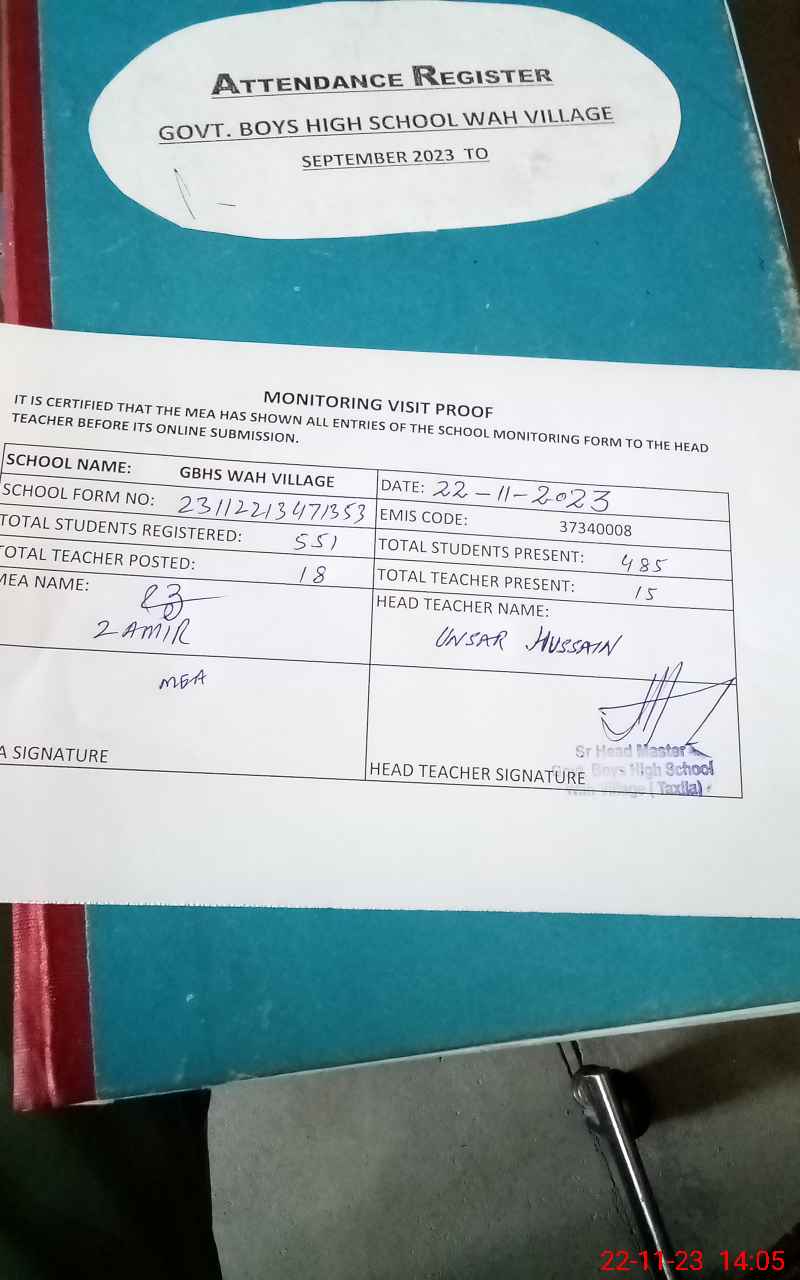 ATTENDANCE REGISTER
GOVT. BOYS HIGH SCHOOL WAH VILLAGE
SEPTEMBER 2023 TO
MONITORING VISIT PROOF
IT IS CERTIFIED THAT THE MEA HAS SHOWN ALL ENTRIES OF THE SCHOOL MONITORING FORM TO THE HEAD
TEACHER BEFORE ITS ONLINE SUBMISSION.
SCHOOL NAME: GBHS WAH VILLAGE
DATE: 22-11-2023
SCHOOL FORM NO: 23112213471353
EMIS CODE: 37340008
TOTAL STUDENTS REGISTERED: 551
TOTAL STUDENTS PRESENT: 485
TOTAL TEACHER POSTED: 18
TOTAL TEACHER PRESENT: 15
MEA NAME:
ZAMIR
HEAD TEACHER NAME:
UNSAR HUSSAIN
MEA
A SIGNATURE
HEAD TEACHER SIGNATURE
Sr Head Master
Govt. Boys High School
Wah Village (Taxila)
22-11-23 14:05